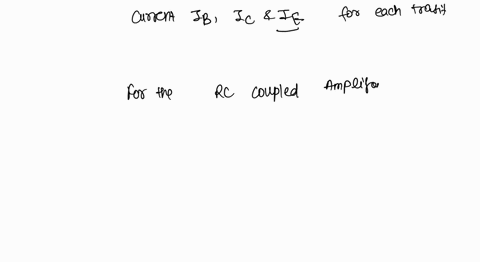 Current IB, IC & IE for each transi
For the RC coupled Amplifo